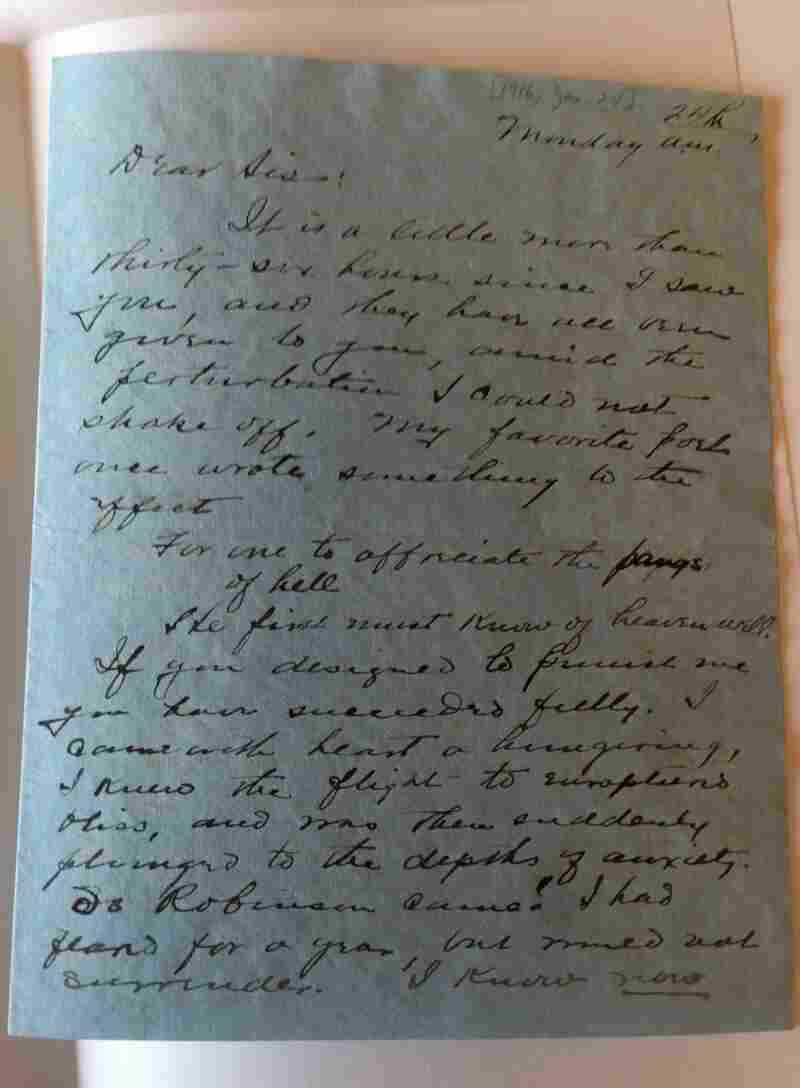 [1916, Jan. 24]
24th
Monday a.m.
Dear Siss:
It is a little more than
thirty-six hours since I saw
you, and they have all been
given to you, amid the
perturbation I could not
shake off. My favorite poet
once wrote something to the
effect
For one to appreciate the pangs
of hell
He first must know of heaven well.
If you designed to punish me
you have succeeded fully. I
came with heart a hungering,
I knew the flight to
bliss, and was then suddenly
plunged to the depths of anxiety.
So Robinson came! I had
feared for a year, but would not
surrender. I know now